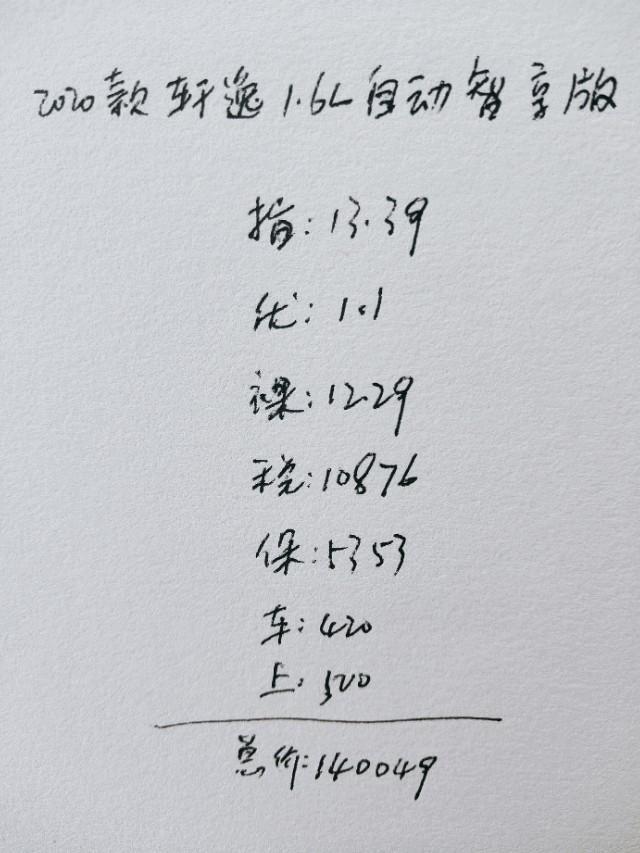 2020款轩逸1.6L自动智享版
指:13.39
优:1.1
裸:12.29
税:10876
保:5353
车:420
上:500
总价:140049